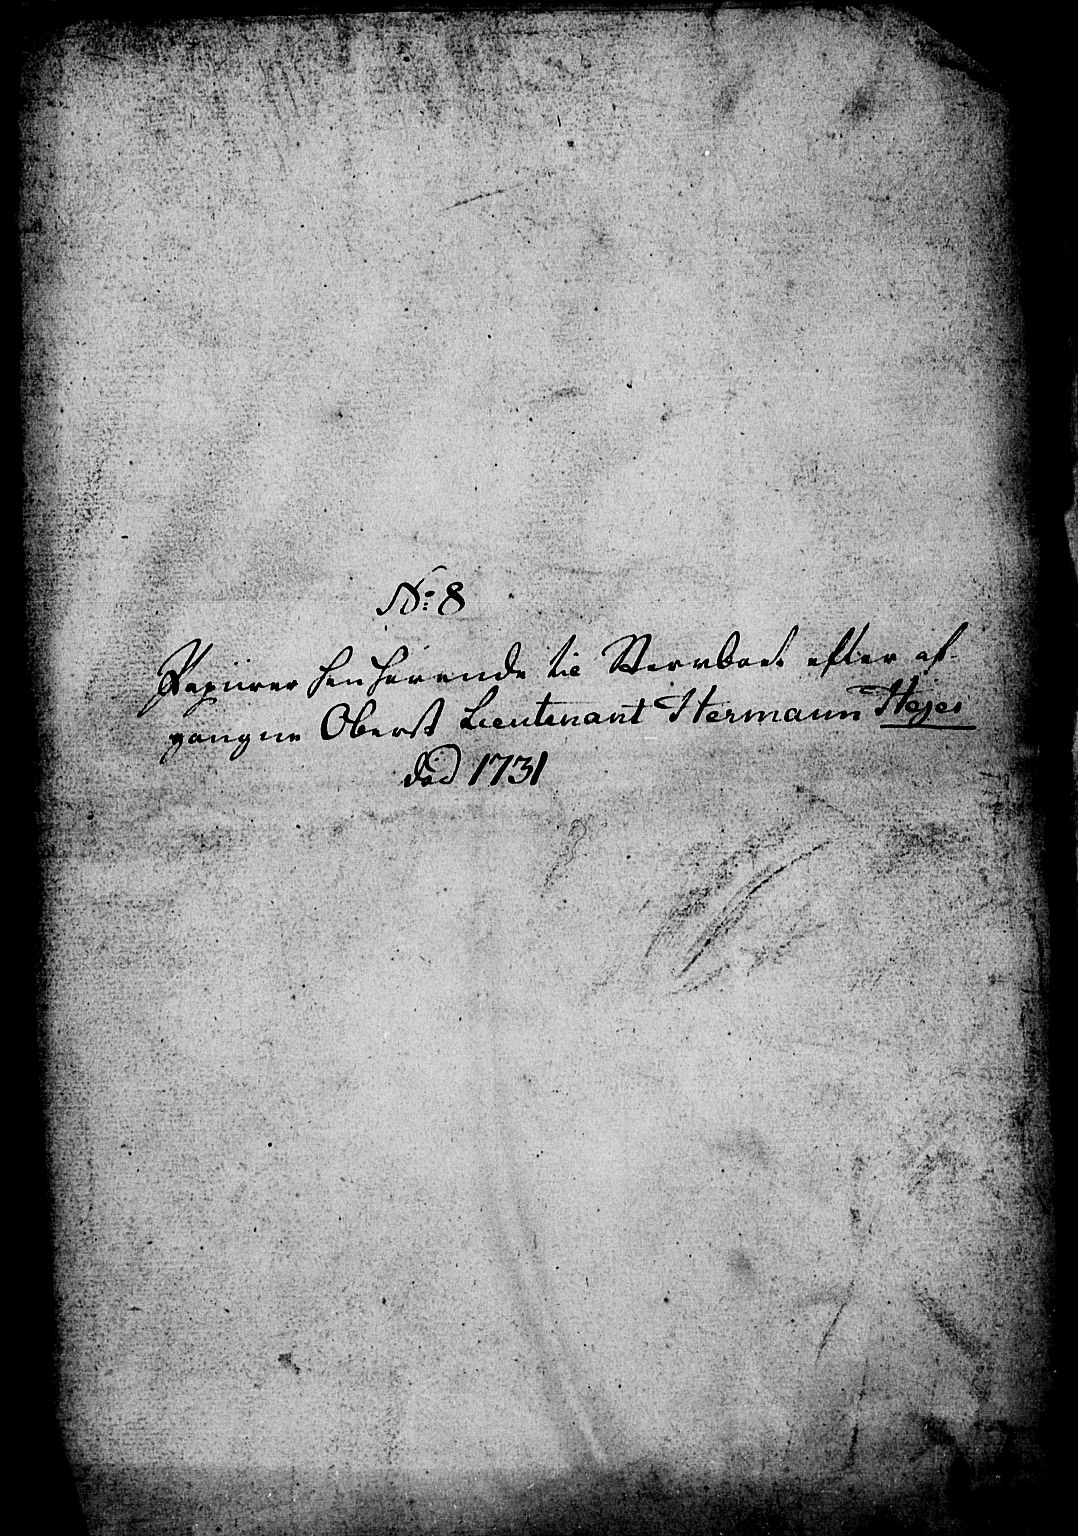 No: 8
Papiirer henhørende til Sterrboet efter af-
gangne Oberst Lieutenant Hermann Hejes
död 1731